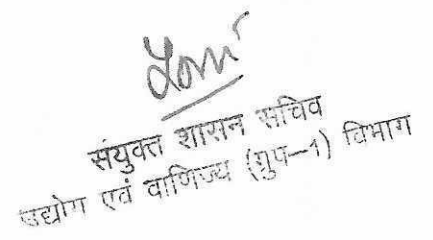 संयुक्त शासन सचिव
उद्योग एवं वाणिज्य (ग्रुप-1) विभाग